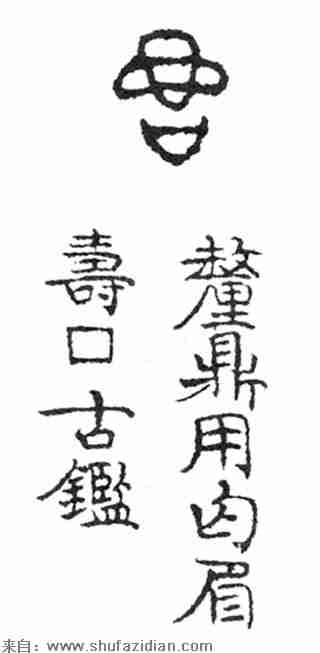 釐鼎用匃眉
壽□古鑑
来自：www.shufazidian.com